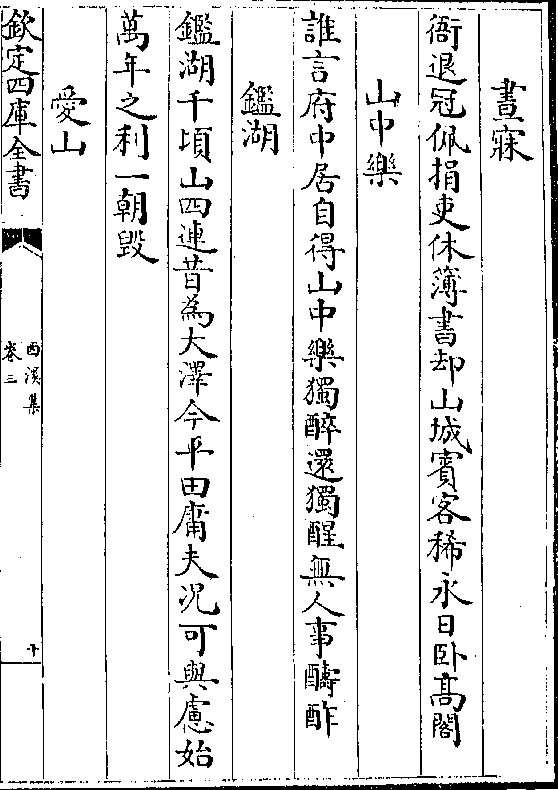 晝寐
衙退冠佩捐吏休簿書却山城賓客稀永日卧髙閣
山中樂
誰言府中居自得山中樂獨醉還獨醒無人事酬酢
鑑湖
鑑湖千頃山四連昔為大澤今平田庸夫況可與慮始
萬年之利一朝毁
愛山
欽定四庫全書
西溪集
卷三
十